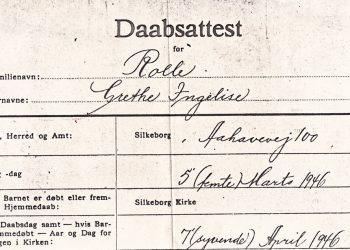 Daabsattest
for
ilienavn: Rolle
rnavne: Grethe Ingelise
, Herred og Amt: Silkeborg, Aahavevej 100
-dag 5' (femte) Marts 1946
Barnet er døbt eller frem-
Hjemmedaab: Silkeborg Kirke
Daabsdag samt — hvis Bar-
mmedøbt — Aar og Dag for
gen i Kirken: 7' (syvende) April 1946